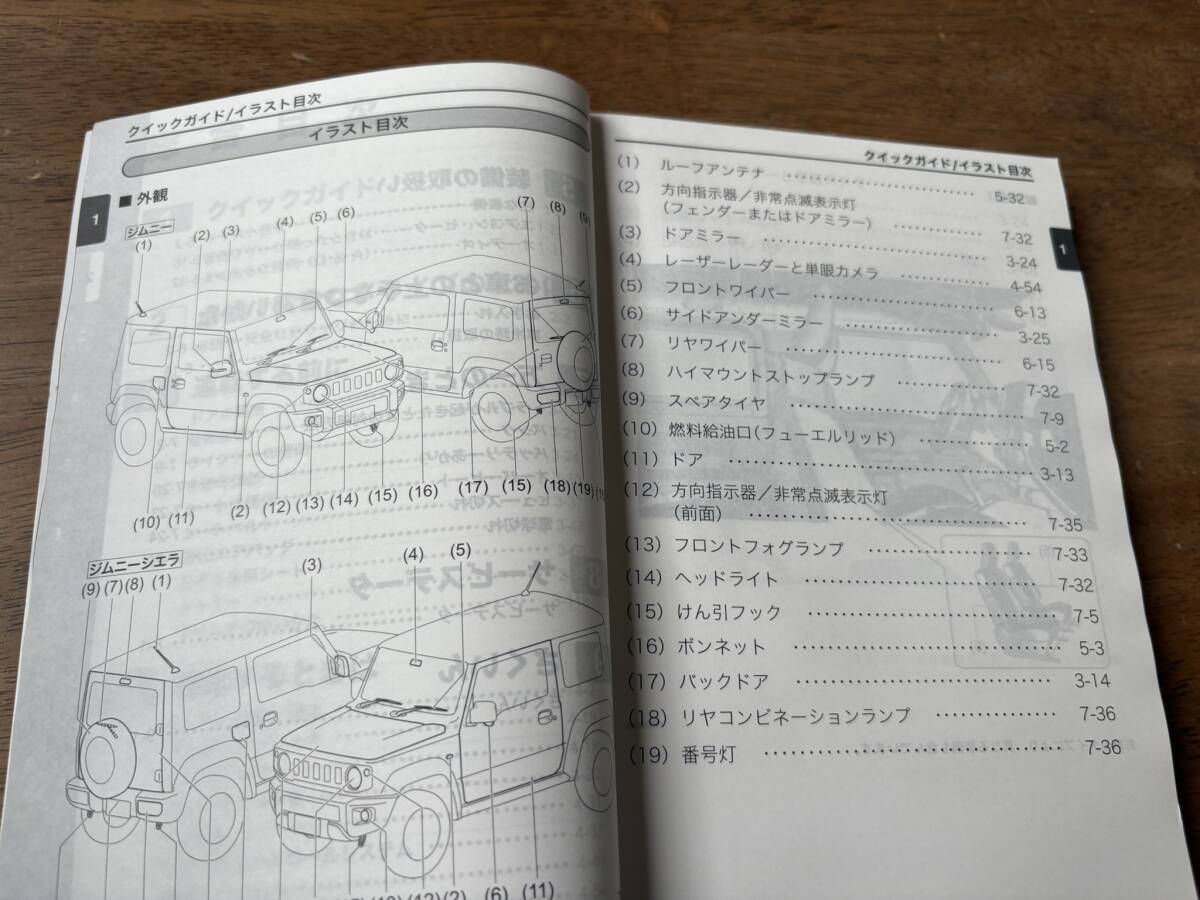 クイックガイド/イラスト目次
イラスト目次
■ 外観
1
ジムニー
(1)
(2) (3) (4) (5) (6)
(7) (8) (9)
(10) (11) (2) (12) (13) (14) (15) (16) (17) (15) (18) (19)
ジムニーシエラ
(9) (7) (8) (1)
(3) (4) (5)
(12) (2) (6) (11)
クイックガイド/イラスト目次
1
(1) ルーフアンテナ 5-32
(2) 方向指示器／非常点滅表示灯
(フェンダーまたはドアミラー) 7-32
(3) ドアミラー 3-24
(4) レーザーレーダーと単眼カメラ 4-54
(5) フロントワイパー 6-13
(6) サイドアンダーミラー 3-25
(7) リヤワイパー 6-15
(8) ハイマウントストップランプ 7-32
(9) スペアタイヤ 7-9
(10) 燃料給油口(フューエルリッド) 5-2
(11) ドア 3-13
(12) 方向指示器／非常点滅表示灯
(前面) 7-35
(13) フロントフォグランプ 7-33
(14) ヘッドライト 7-32
(15) けん引フック 7-5
(16) ボンネット 5-3
(17) バックドア 3-14
(18) リヤコンビネーションランプ 7-36
(19) 番号灯 7-36